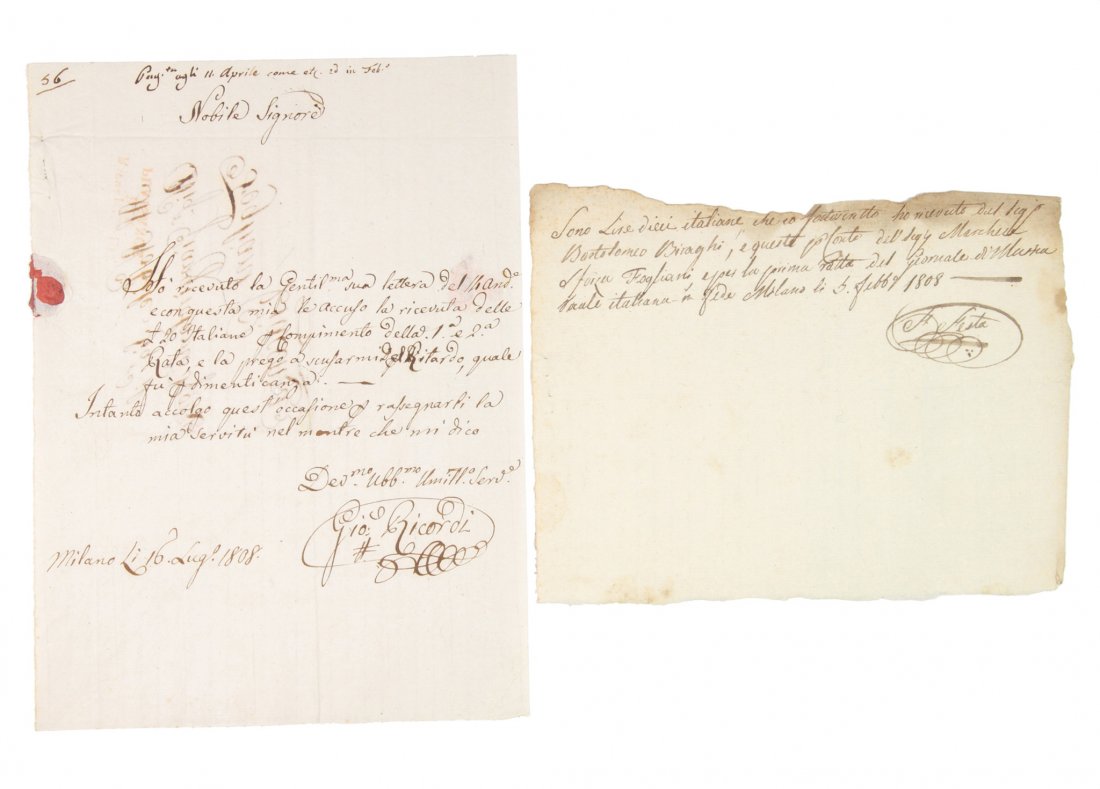 56
agli 11. Aprile come etc. in Feb.º
Nobile Signore
Ho ricevuto la Gentil.ma sua lettera del
e con questa mia le accuso la ricevuta delle
20 Italiane Compimento della 1.a e 2.a
Rata, e la prego a scusarmi del Ritardo, quale
fù dimenticanza. —
Intanto accolgo quest'occasione rassegnarli la
mia servitù nel mentre che mi dico
Dev.mo Ubb.mo Umill.o Serv.e
Gio. Ricordi
Milano Li 16. Lugº. 1808.
Sono Lire dieci italiane che io ho ricevuto dal Sigr
Bortolomeo Biraghi, e queste dell' Marchese
Sforza Fogliani e per la prima ratta del giornale di Musica
italiana in fede Milano li 5. Febbº 1808 —
Festa